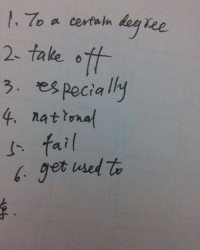 1. To a certain degree
2. take off
3. especially
4. national
5. fail
6. get used to